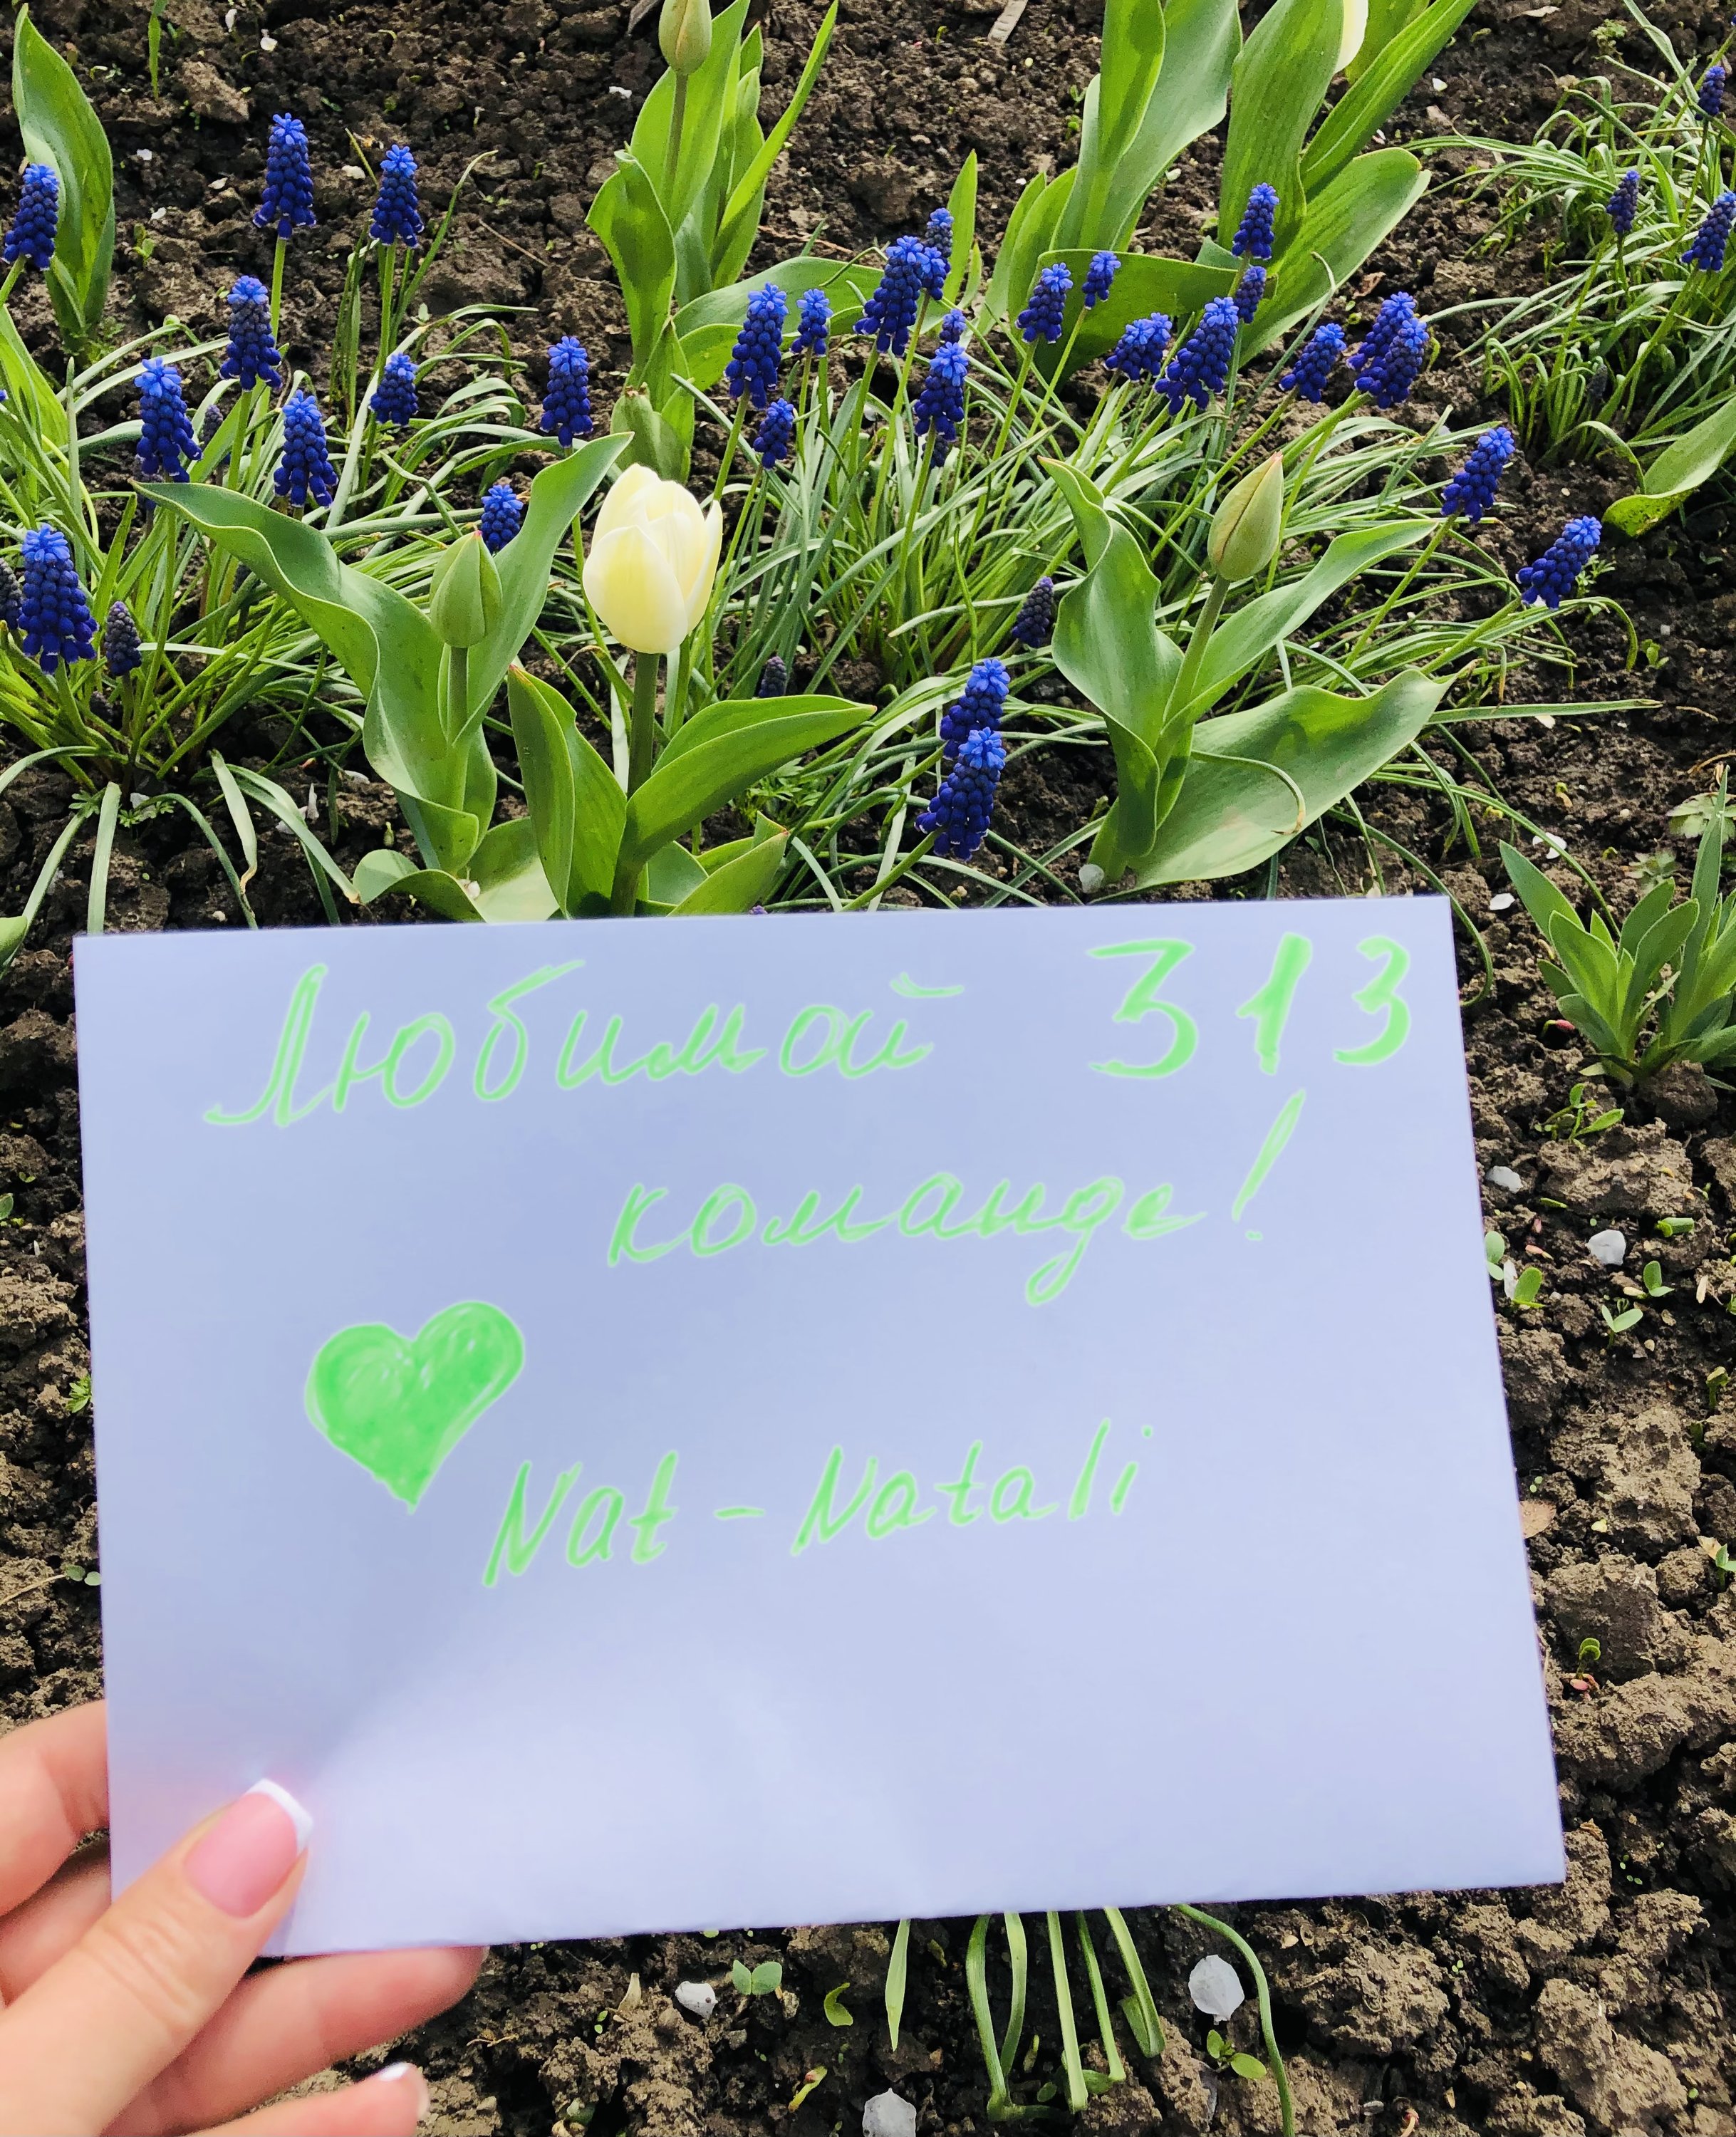 Любимой 313
команде!
Nat-Natali